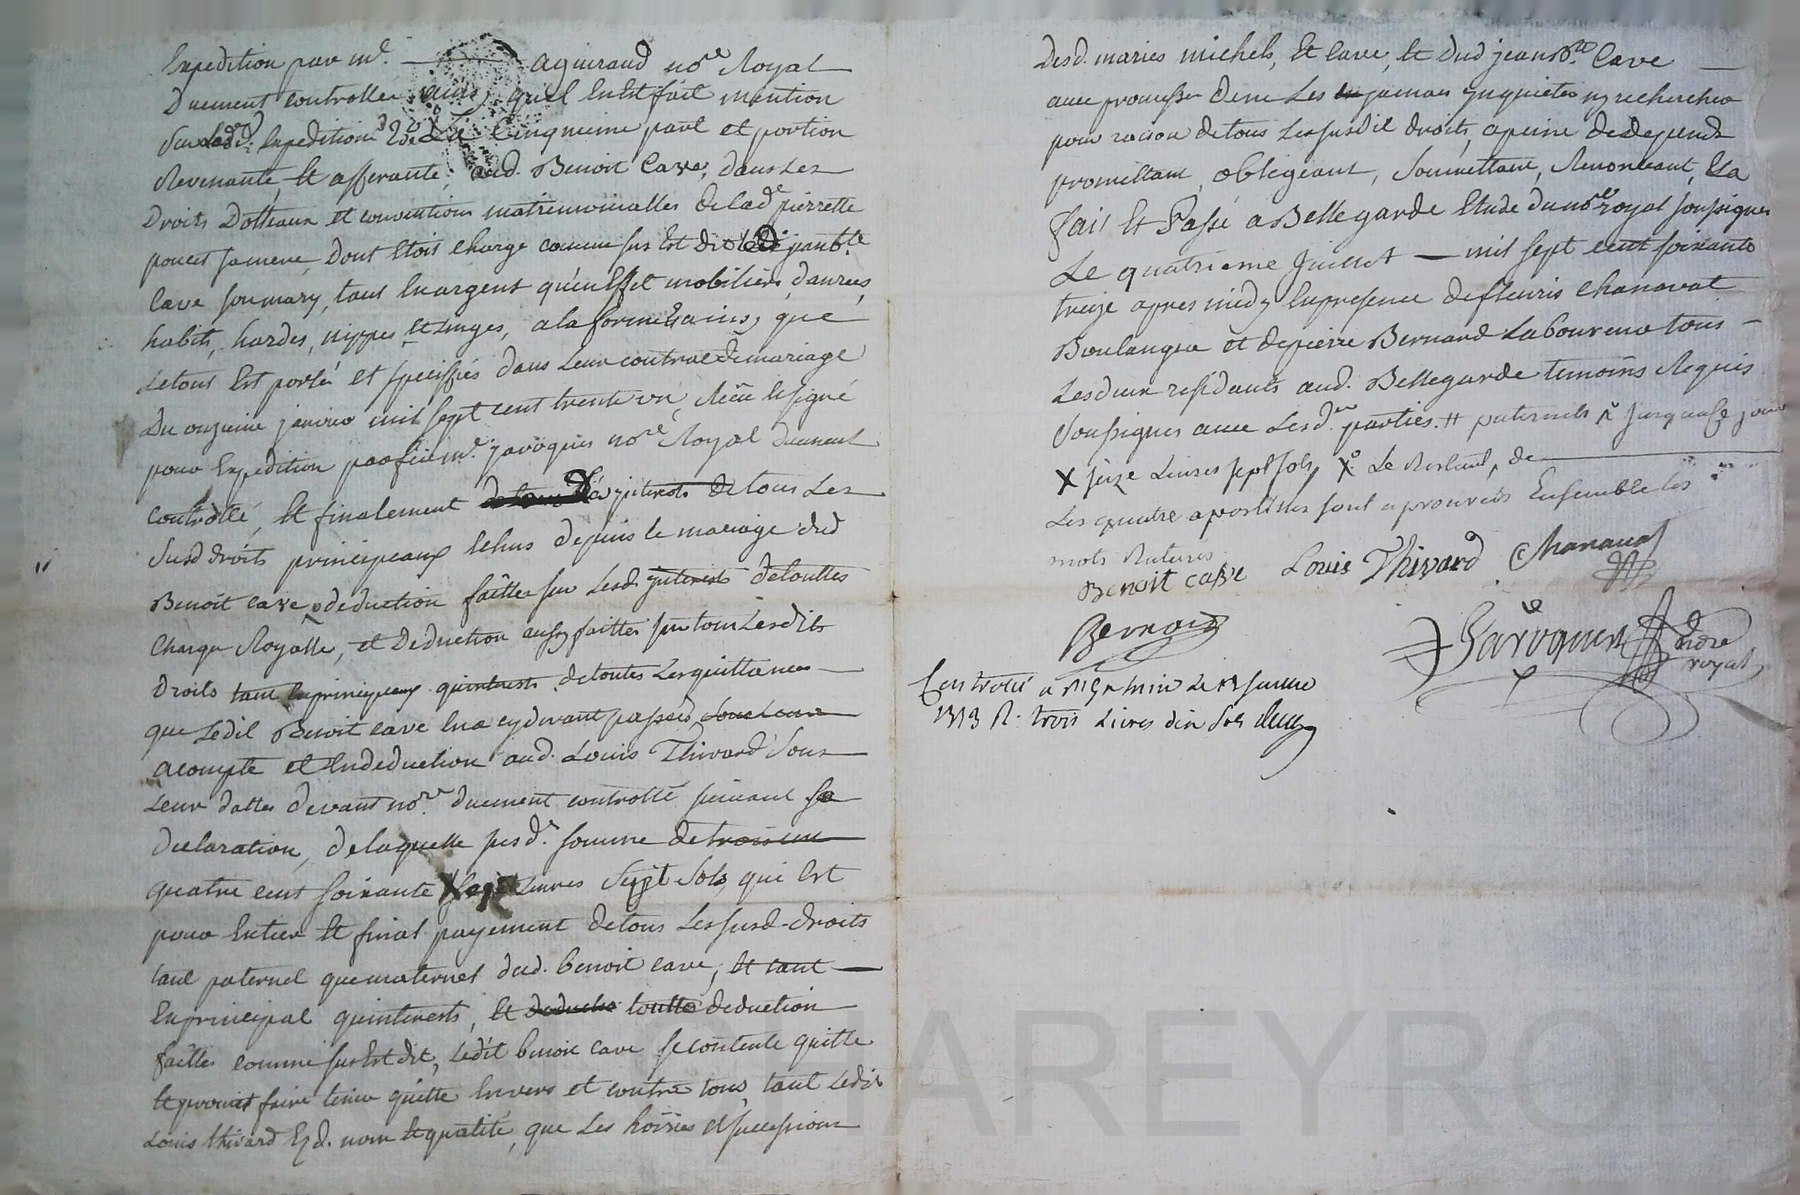 Expedition par me. Aguiraud nore Royal
Duement controllee ainsy quel en Est fait mention
Sur Lade. Expedition 2o. La Cinquieme part et portion
Revenante, Et afferante, aud. Benoit Cave, dans Les
Droits Dotteaux et conventions matrimonialles de Lade pierrette
poncet sa mere, Dont Etoit charge comme sus Est dit led jean bte
Cave son mary, tant En argent qu'en Effet mobiliers, danrées,
habits, hardes, nippes et Linges, a la forme Et ainsy que
Le tout Est porté et spécifiés dans Leur contrat de mariage
Du onzieme janvier mil sept cent trente un, Reçu Et signé
pour Expedition par feu me. javoques nore Royal duement
controllé, Et finalement de tous Les
Susd droits principeaux Echus depuis le mariage dud
Benoit cave deduction faittes sur Lesd. interests de touttes
Charge Royalle, et Deduction aussy faittes sur tous Lesdits
Droits tant En principeaux qu'interests de toutes Les quittances
que Ledit Benoit cave luy a cy devant passées
acompte et En deduction aud. Louis Thivard Sous
Leur dattes devant nore duement controllé suivant sa
declaration, de laquelle susde. somme de
quatre cent soixante X Livres Sept Sols, qui Est
pour Entier Et final payement de tous Les susd. droits
tant paternel que maternel dud. benoit cave, Et tant
En principal qu'interests, Et toutte deduction
faittes comme sus Est dit, Ledit benoit cave se contente quitte
Et promet faire tenir quitte Envers et contre tous, tant Ledit
Louis thivard Ezd. nom Et qualité, que Les hoiries et successions
Desd. maries michels, Et Cave, Et dud jean bte. Cave
avec promesse de ne Les jamais inquieter ny rechercher
pour raison de tous Les susdit droits, a peine de depends
promettant, obligeant, Soumettant, Renonceant, Eta
fait Et Passé a Bellegarde Etude du nore royal soussigné
Le quatrieme Juillet mil sept cent soixante
treize apres midy En presence de fleuris chanavat
Boulanger et de pierre Bernard Laboureur tous
Les deux residants aud. Bellegarde temoins Requis
Soussignes avec Lesd. parties. # paternels X jusqu'a ce jour
X seize Livres sept sols, X Le Restant, de
Les quatre apostilles sont aprouvées Ensemble les
mots Raturés
Benoit casve Louis Thivard Chanavat
Bernard
Javoques nore royal
Controllé a Le Juillet
1773 R. trois Livres dix Sols
CHAREYRO